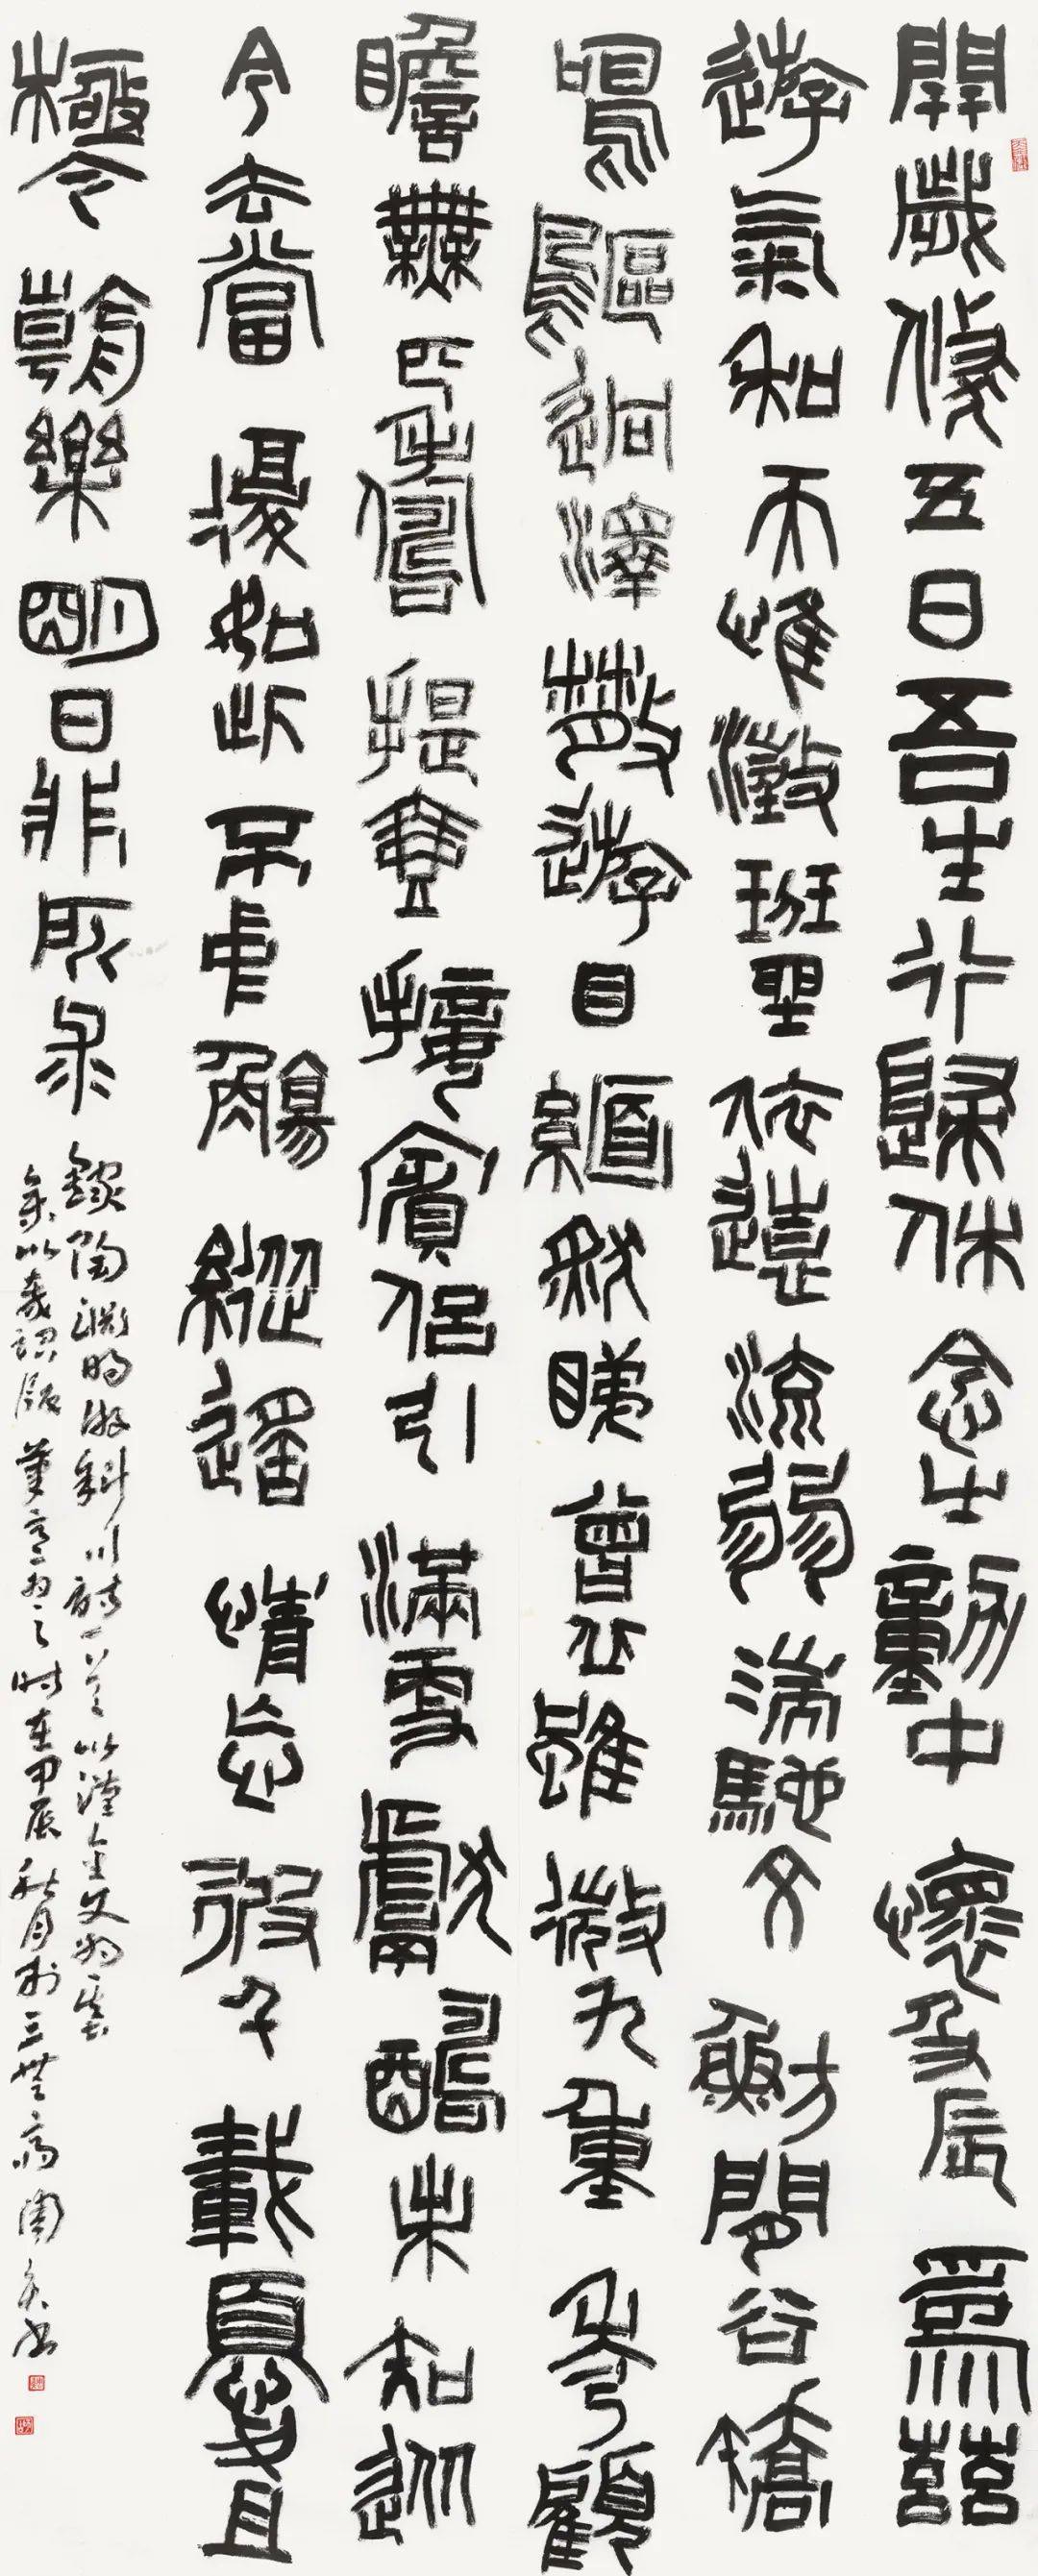 開歲倏五日吾生行歸休念之動中懷及辰為茲
遊氣和天惟澂班坐依遠流弱湍馳文魴閒谷矯
鳴鷗迥澤散遊目緬然睇曾丘雖微九重秀顧
瞻無匹儔提壺接賓侶引滿更獻酬未知從
今去當復如此不中觴縱遙情忘彼千載憂且
極今朝樂明日非所求
錄陶淵明游斜川詩一首以漢金文為基
兼以秦詔版筆意為之時在甲辰秋月於三